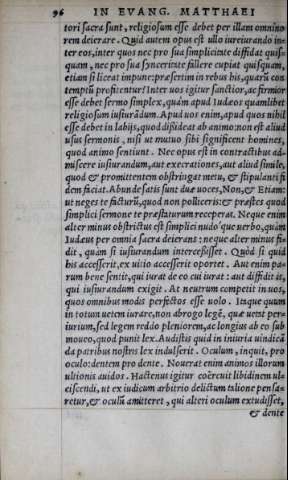 96 IN EVANG. MATTHAEI
tori sacra sunt, religiosum esse debet per illam omnino
rem deierare. Quid autem opus est ullo iureiurando in-
ter eos, inter quos nec pro sua simplicitate diffidat quis&
quam, nec pro sua synceritate fallere cupiat quisquam,
etiam si liceat impune: præsertim in rebus his, quarũ con
temptũ profitentur? Inter uos igitur sanctior, ac firmior
esse debet sermo simplex, quàm apud Iudæos quamlibet
religiosum iusiurãdum. Apud uos enim, apud quos nihil
esse debet in labijs, quod dißideat ab animo: non est aliud
usus sermonis, nisi ut mutuo sibi significent homines,
quod animo sentiunt. Nec opus est in contractibus ad-
miscere iusiurandum, aut execrationes, aut aliud simile,
quod & promittentem obstringat metu, & stipulanti fi
dem faciat. Abunde satis sunt duæ uoces, Non, & Etiam:
ut neges te facturũ, quod non polliceris: & præstes quod
simplici sermone te præstaturum receperas. Neque enim
alter minus obstrictus est simplici nudo'que uerbo, quàm
Iudæus per omnia sacra deierans: neque alter minus fi-
dit, quàm si iusiurandum intercesisset. Quòd si quid
his accesserit, ex uitio accesserit oportet. Aut enim pa-
rum bene sentit, qui iurat de eo cui iurat: aut diffidit is,
qui iusiurandum exigit. At neutrum competit in uos,
quos omnibus modis perfectos esse uolo. Itaque quum
in totum uetem iurare, non abrogo legẽ, quæ uetat per-
iurium, sed legem reddo pleniorem, ac longius ab eo sub
moueo, quod punit lex. Audistis quid in iniuria uindicã
da patribus nostris lex indulserit. Oculum, inquit, pro
oculo: dentem pro dente. Nouerat enim animos illorum
ultionis auidos. Hactenus igitur coërcuit libidinem ul-
ciscendi, ut ex iudicum arbitrio delictum talione pensa-
retur, & oculũ amitteret, qui alteri oculum extudisset,
& dente